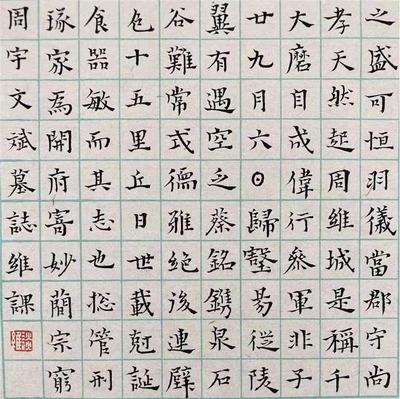 之盛可恒羽儀當郡守尚
孝天然起周維城是稱千
大磨目成偉行參軍非子
廿九月六⊙歸壑易從陵
翼有遇空乏蔡銘鐫泉石
谷難常式德雅絕後連璧
色十五里丘日世載尅誕
食器敏而其志也揔管刑
琢家焉開府寄妙蕳宗窮
周宇文斌墓誌維課